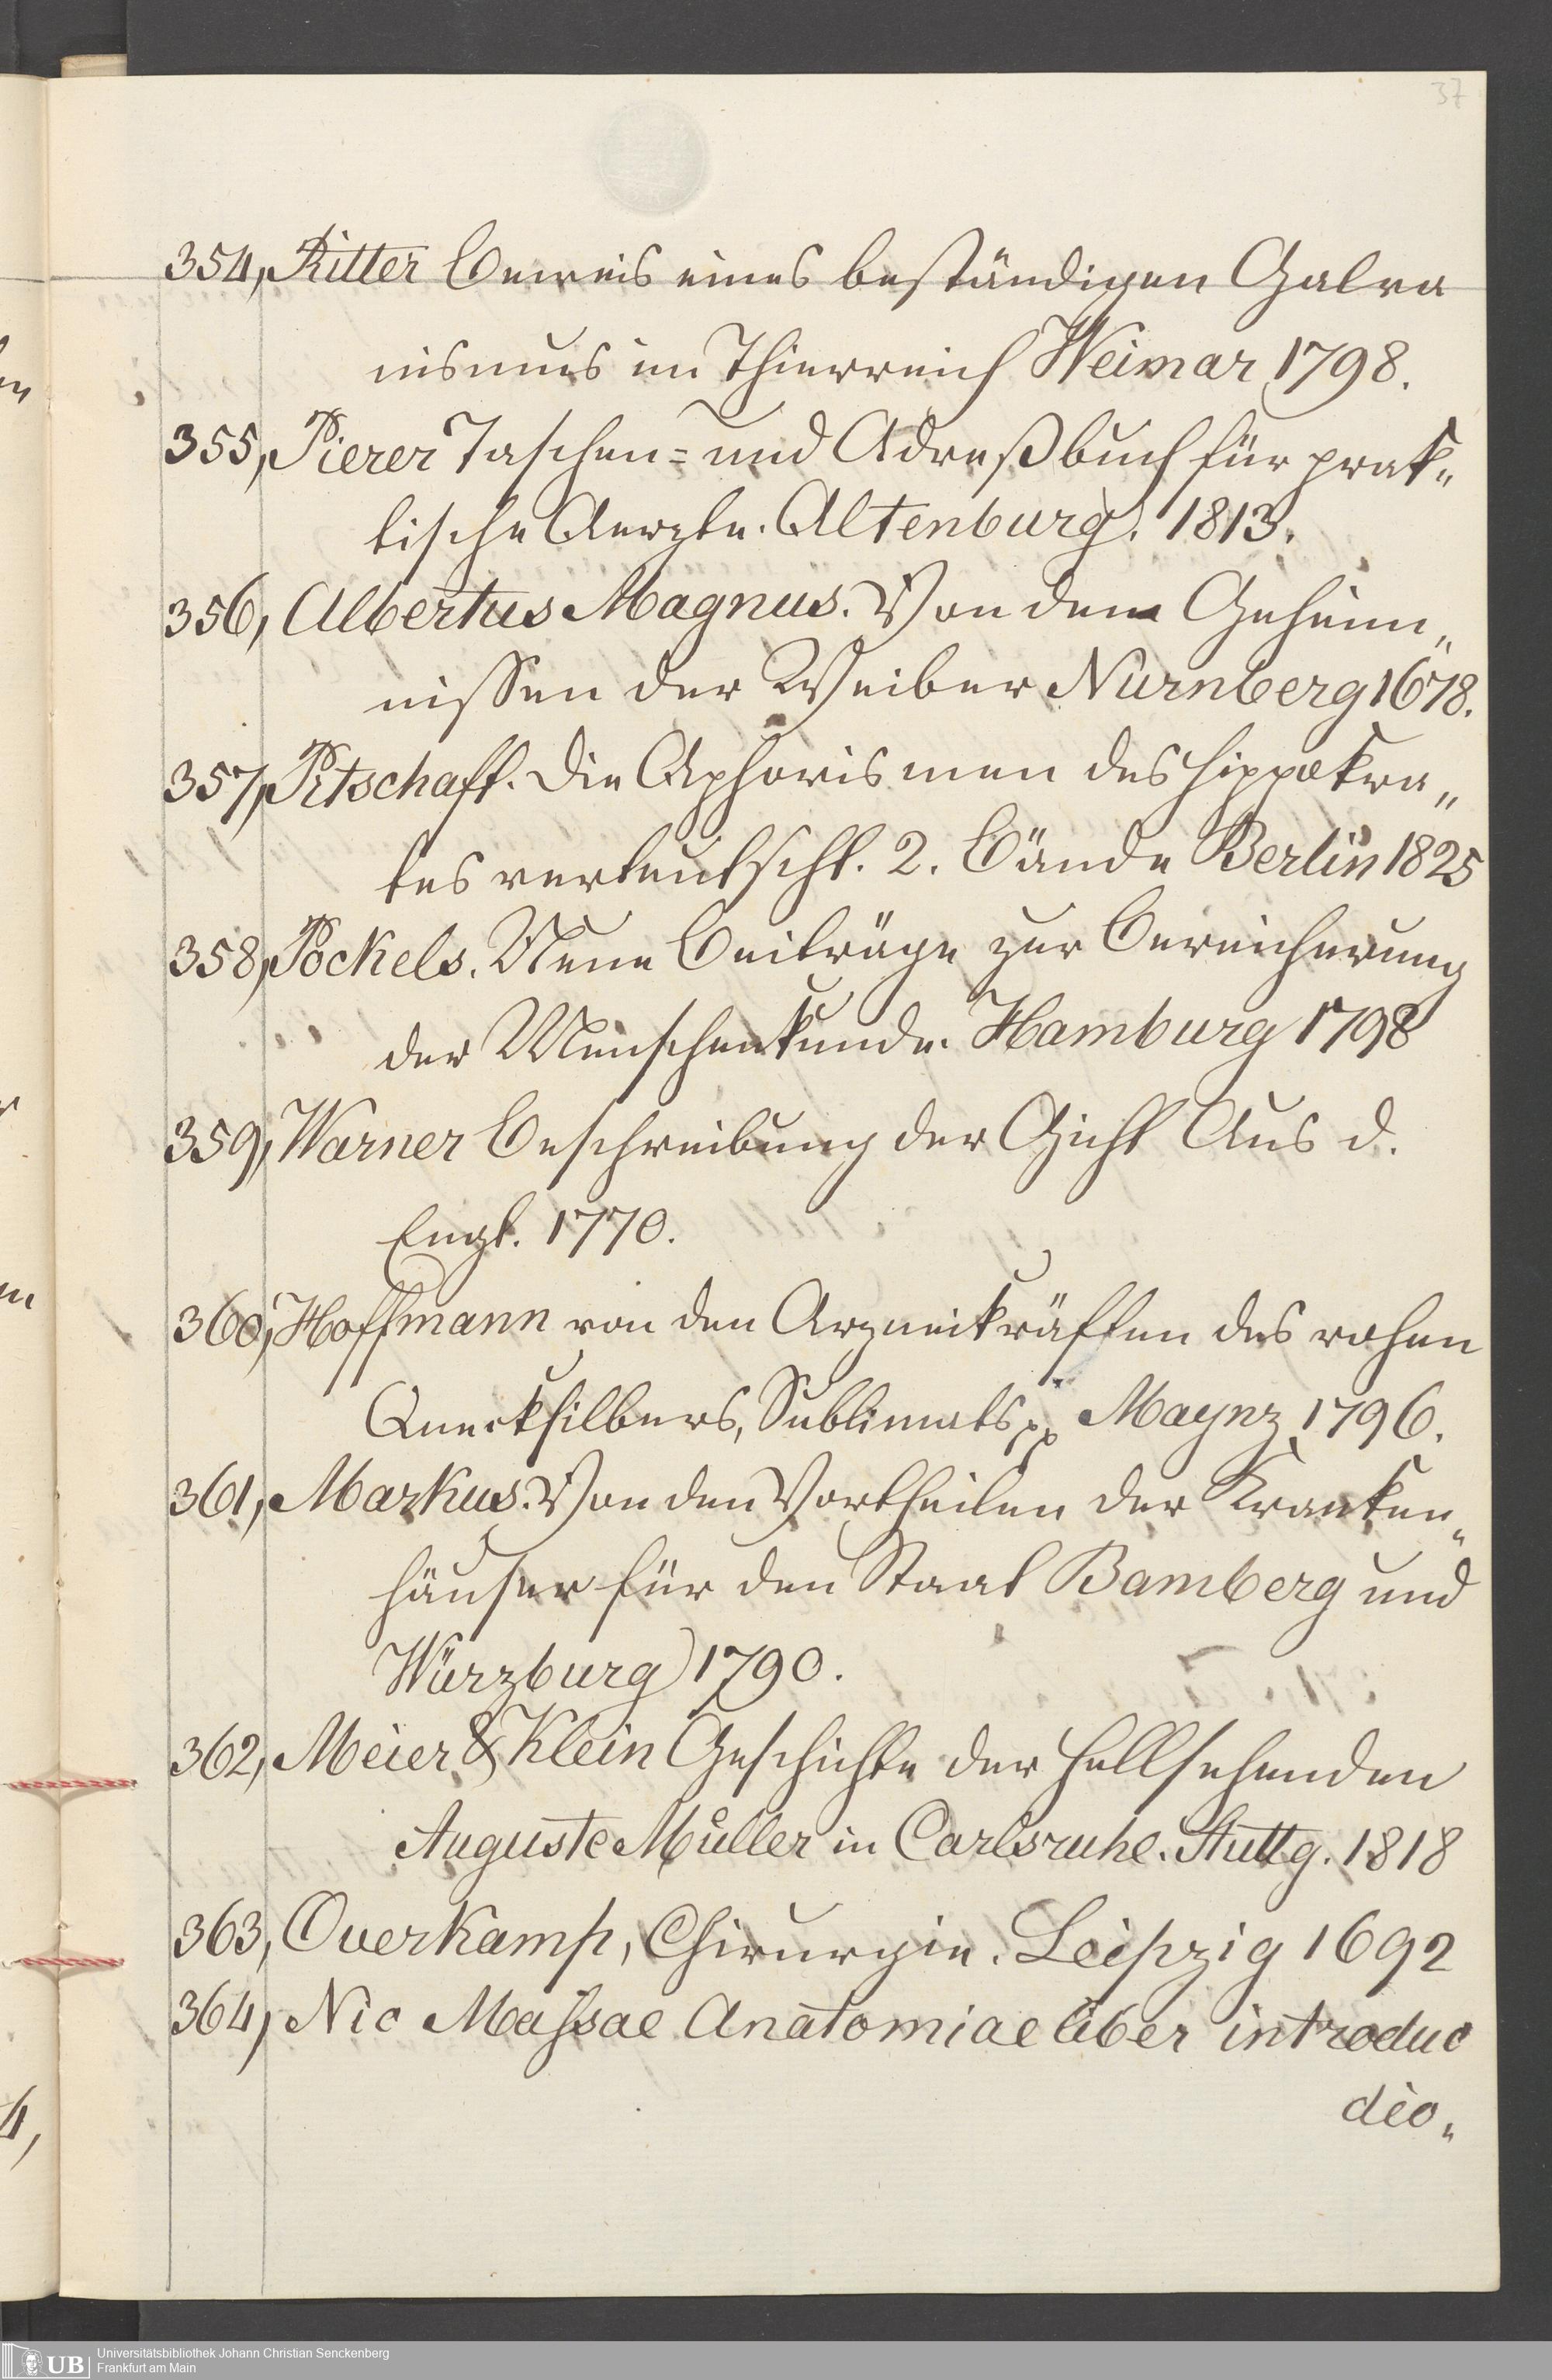 37
354, Ritter Beweis eines beständigen Galva
nismus im Thierreich Weimar 1798.
355, Pierer Taschen= und Adreßbuch für prak„
tische Aerzte. Altenburg. 1813.
356, Albertus Magnus. Von den Geheim„
nissen der Weiber Nürnberg 1678.
357, Pitschaft. Die Aphorismen des Hippokra„
tes verteutscht. 2. Bände Berlin 1825
358, Pockels. Neue Beiträge zur Bereicherung
der Menschenkunde. Hamburg 1798
359, Warner Beschreibung der Gicht Aus d.
Engl. 1770.
360, Hoffmann von den Arzneikräften des rohen
Quecksilbers, Sublimats pp Maynz 1796.
361, Markus. Von den Vortheilen der Kranken„
häuser für den Staat Bamberg und
Würzburg 1790.
362, Meier & Klein Geschichte der Hellsehenden
Auguste Müller in Carlsruhe. Stuttg. 1818
363, Overkamp, Chirurgie. Leipzig 1692
364, Nic Massae Anatomiae liber introduc
dio„
UB Universitätsbibliothek Johann Christian Senckenberg
Frankfurt am Main